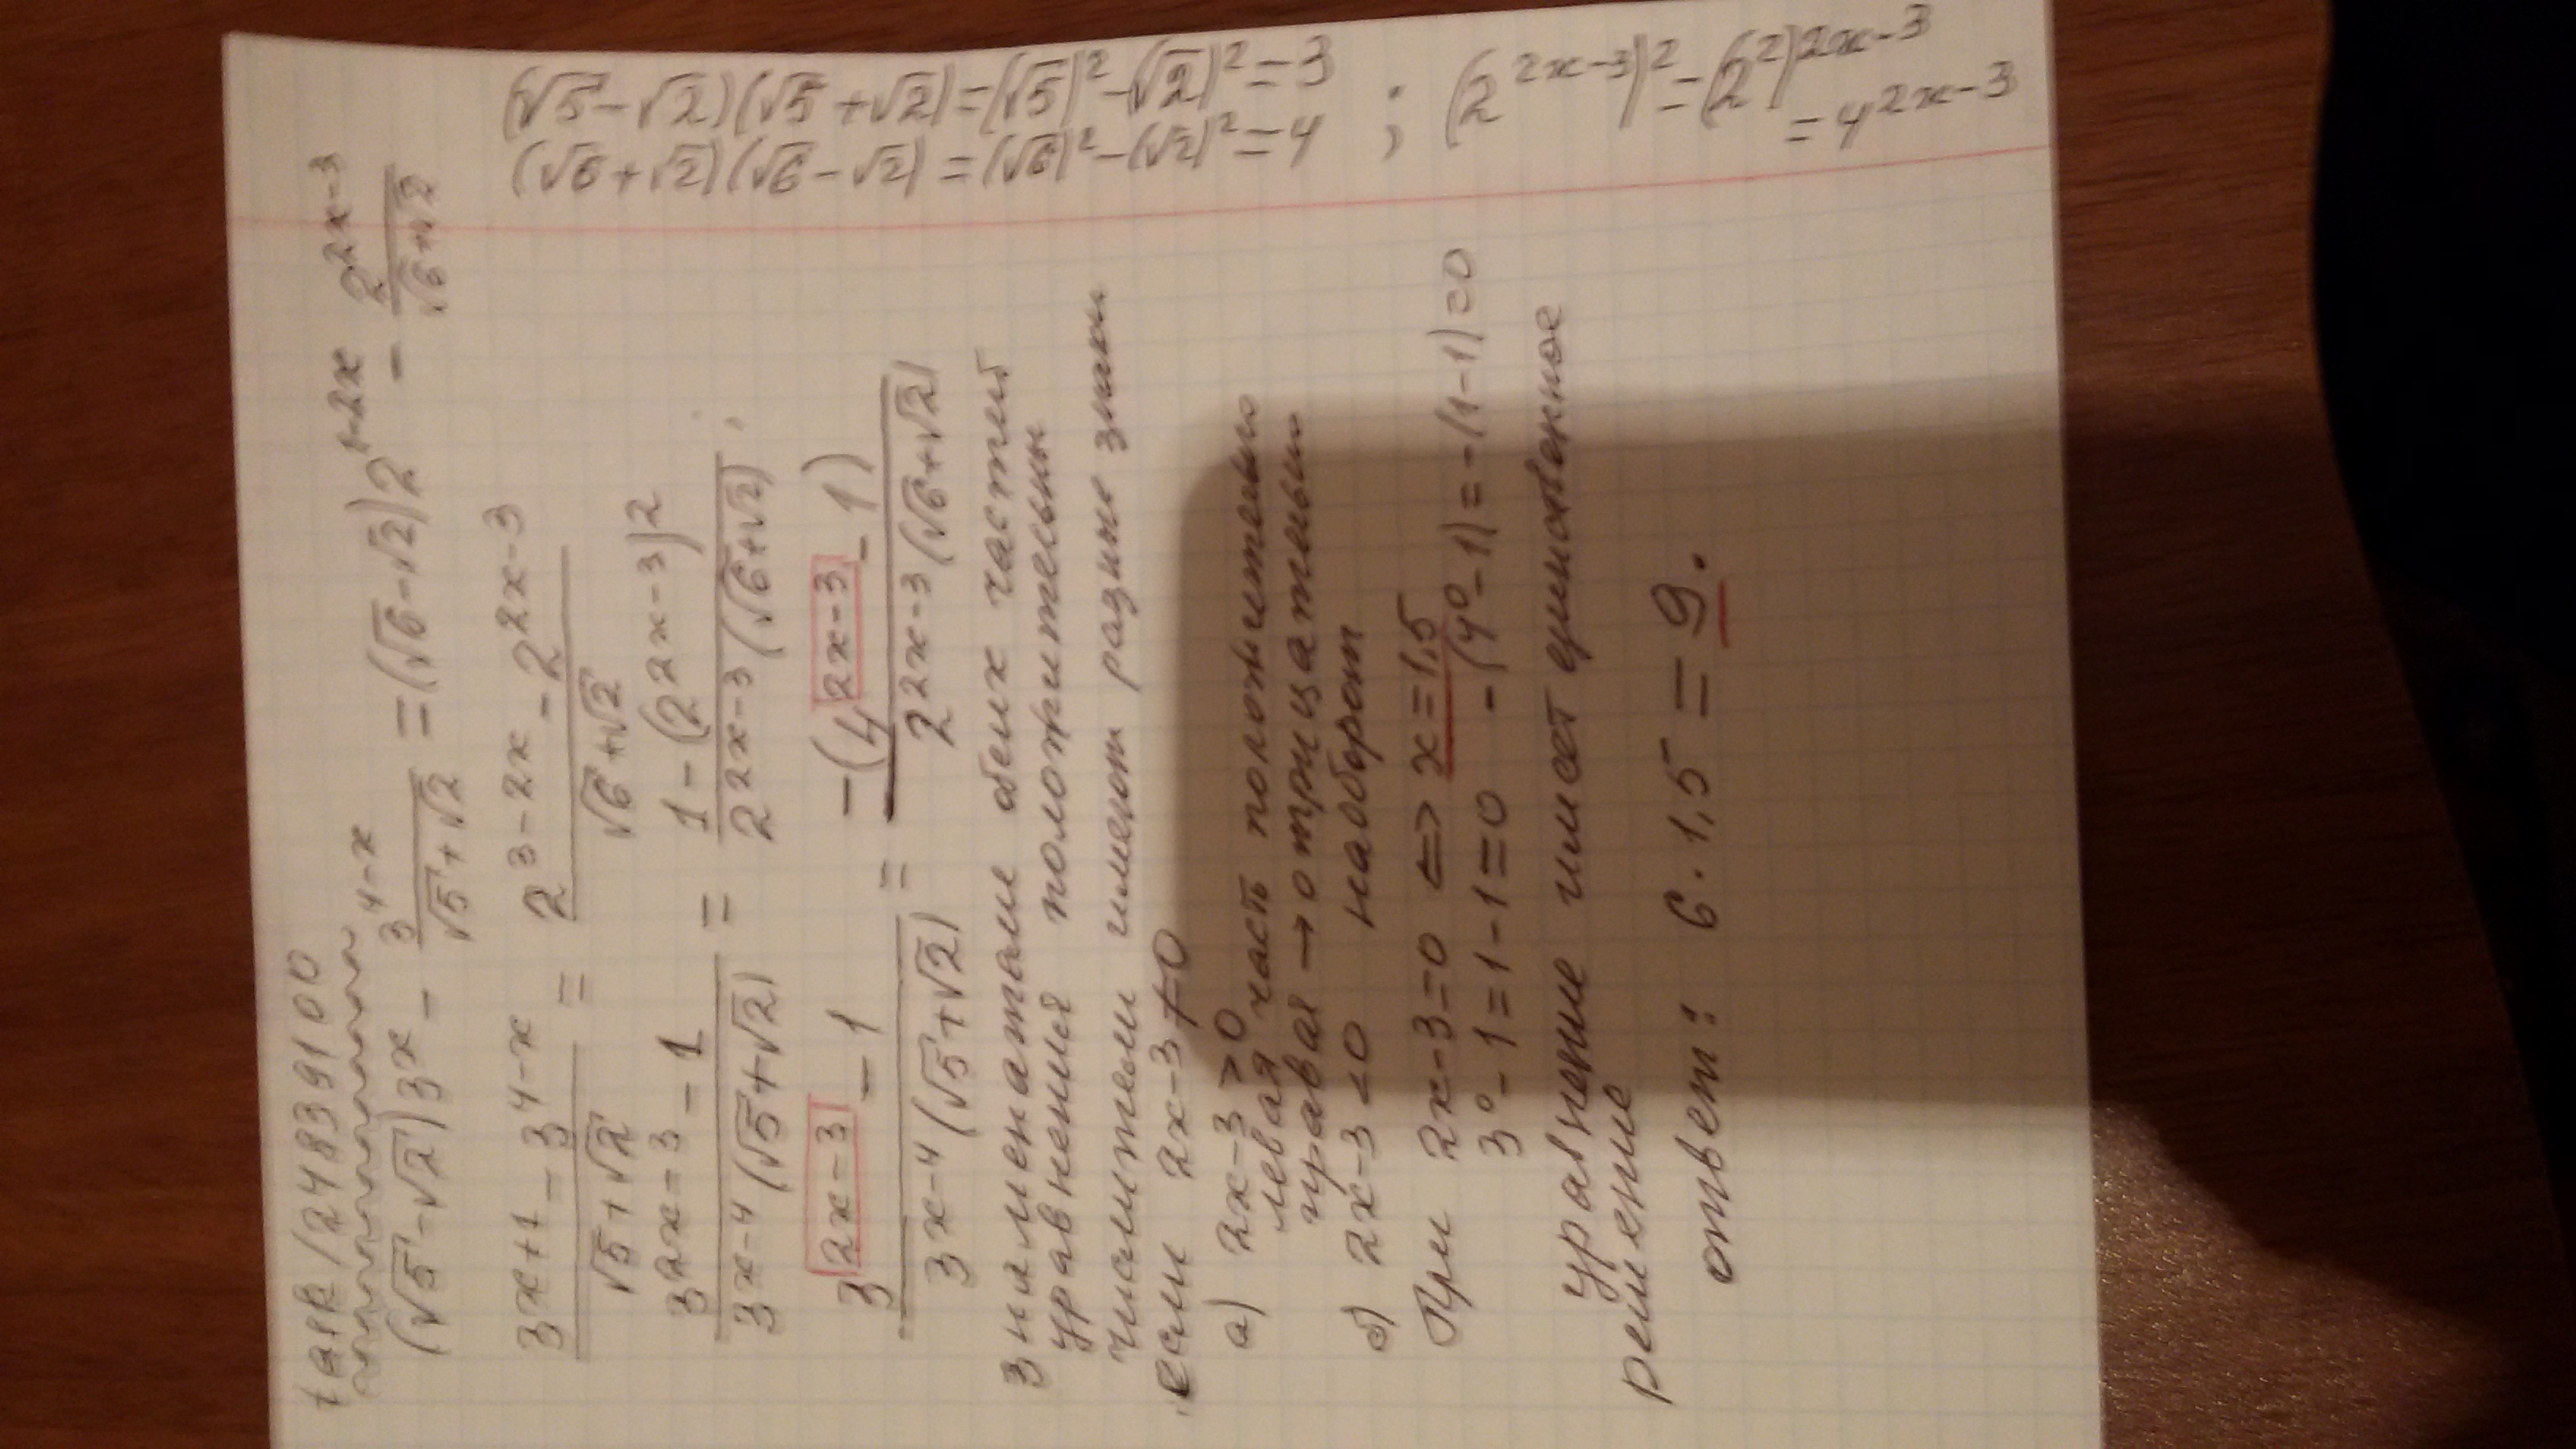 task/24839100
(√5-√2)3^x - 3^(4-x)/(√5+√2) = (√6-√2)2^(1-2x) - 2^(2x-3)/(√6+√2)
(3^(x+1) - 3^(4-x))/(√5+√2) = (2^(3-2x) - 2^(2x-3))/(√6+√2)
(3^(2x-3) - 1)/(3^(x-4)(√5+√2)) = (1-(2^(2x-3))^2)/(2^(2x-3)(√6+√2)) ;
(3^(2x-3) - 1)/(3^(x-4)(√5+√2)) = -(4^(2x-3) - 1)/(2^(2x-3)(√6+√2))
знаменатели обеих частей
уравнения положительны
числители имеют разные знаки
если 2x-3≠0
а) 2x-3>0
левая часть положительно
правая → отрицательн
б) 2x-3<0 наоборот
При 2x-3=0 <=> x=1,5
3^0-1=1-1=0 -(4^0-1)=-(1-1)=0
уравнение имеет единственное
решение
ответ: 6·1,5=9.
(√5-√2)(√5+√2)=(√5)^2-(√2)^2=3
(√6+√2)(√6-√2)=(√6)^2-(√2)^2=4
; (2^(2x-3))^2=(2^2)^(2x-3)
=4^(2x-3)